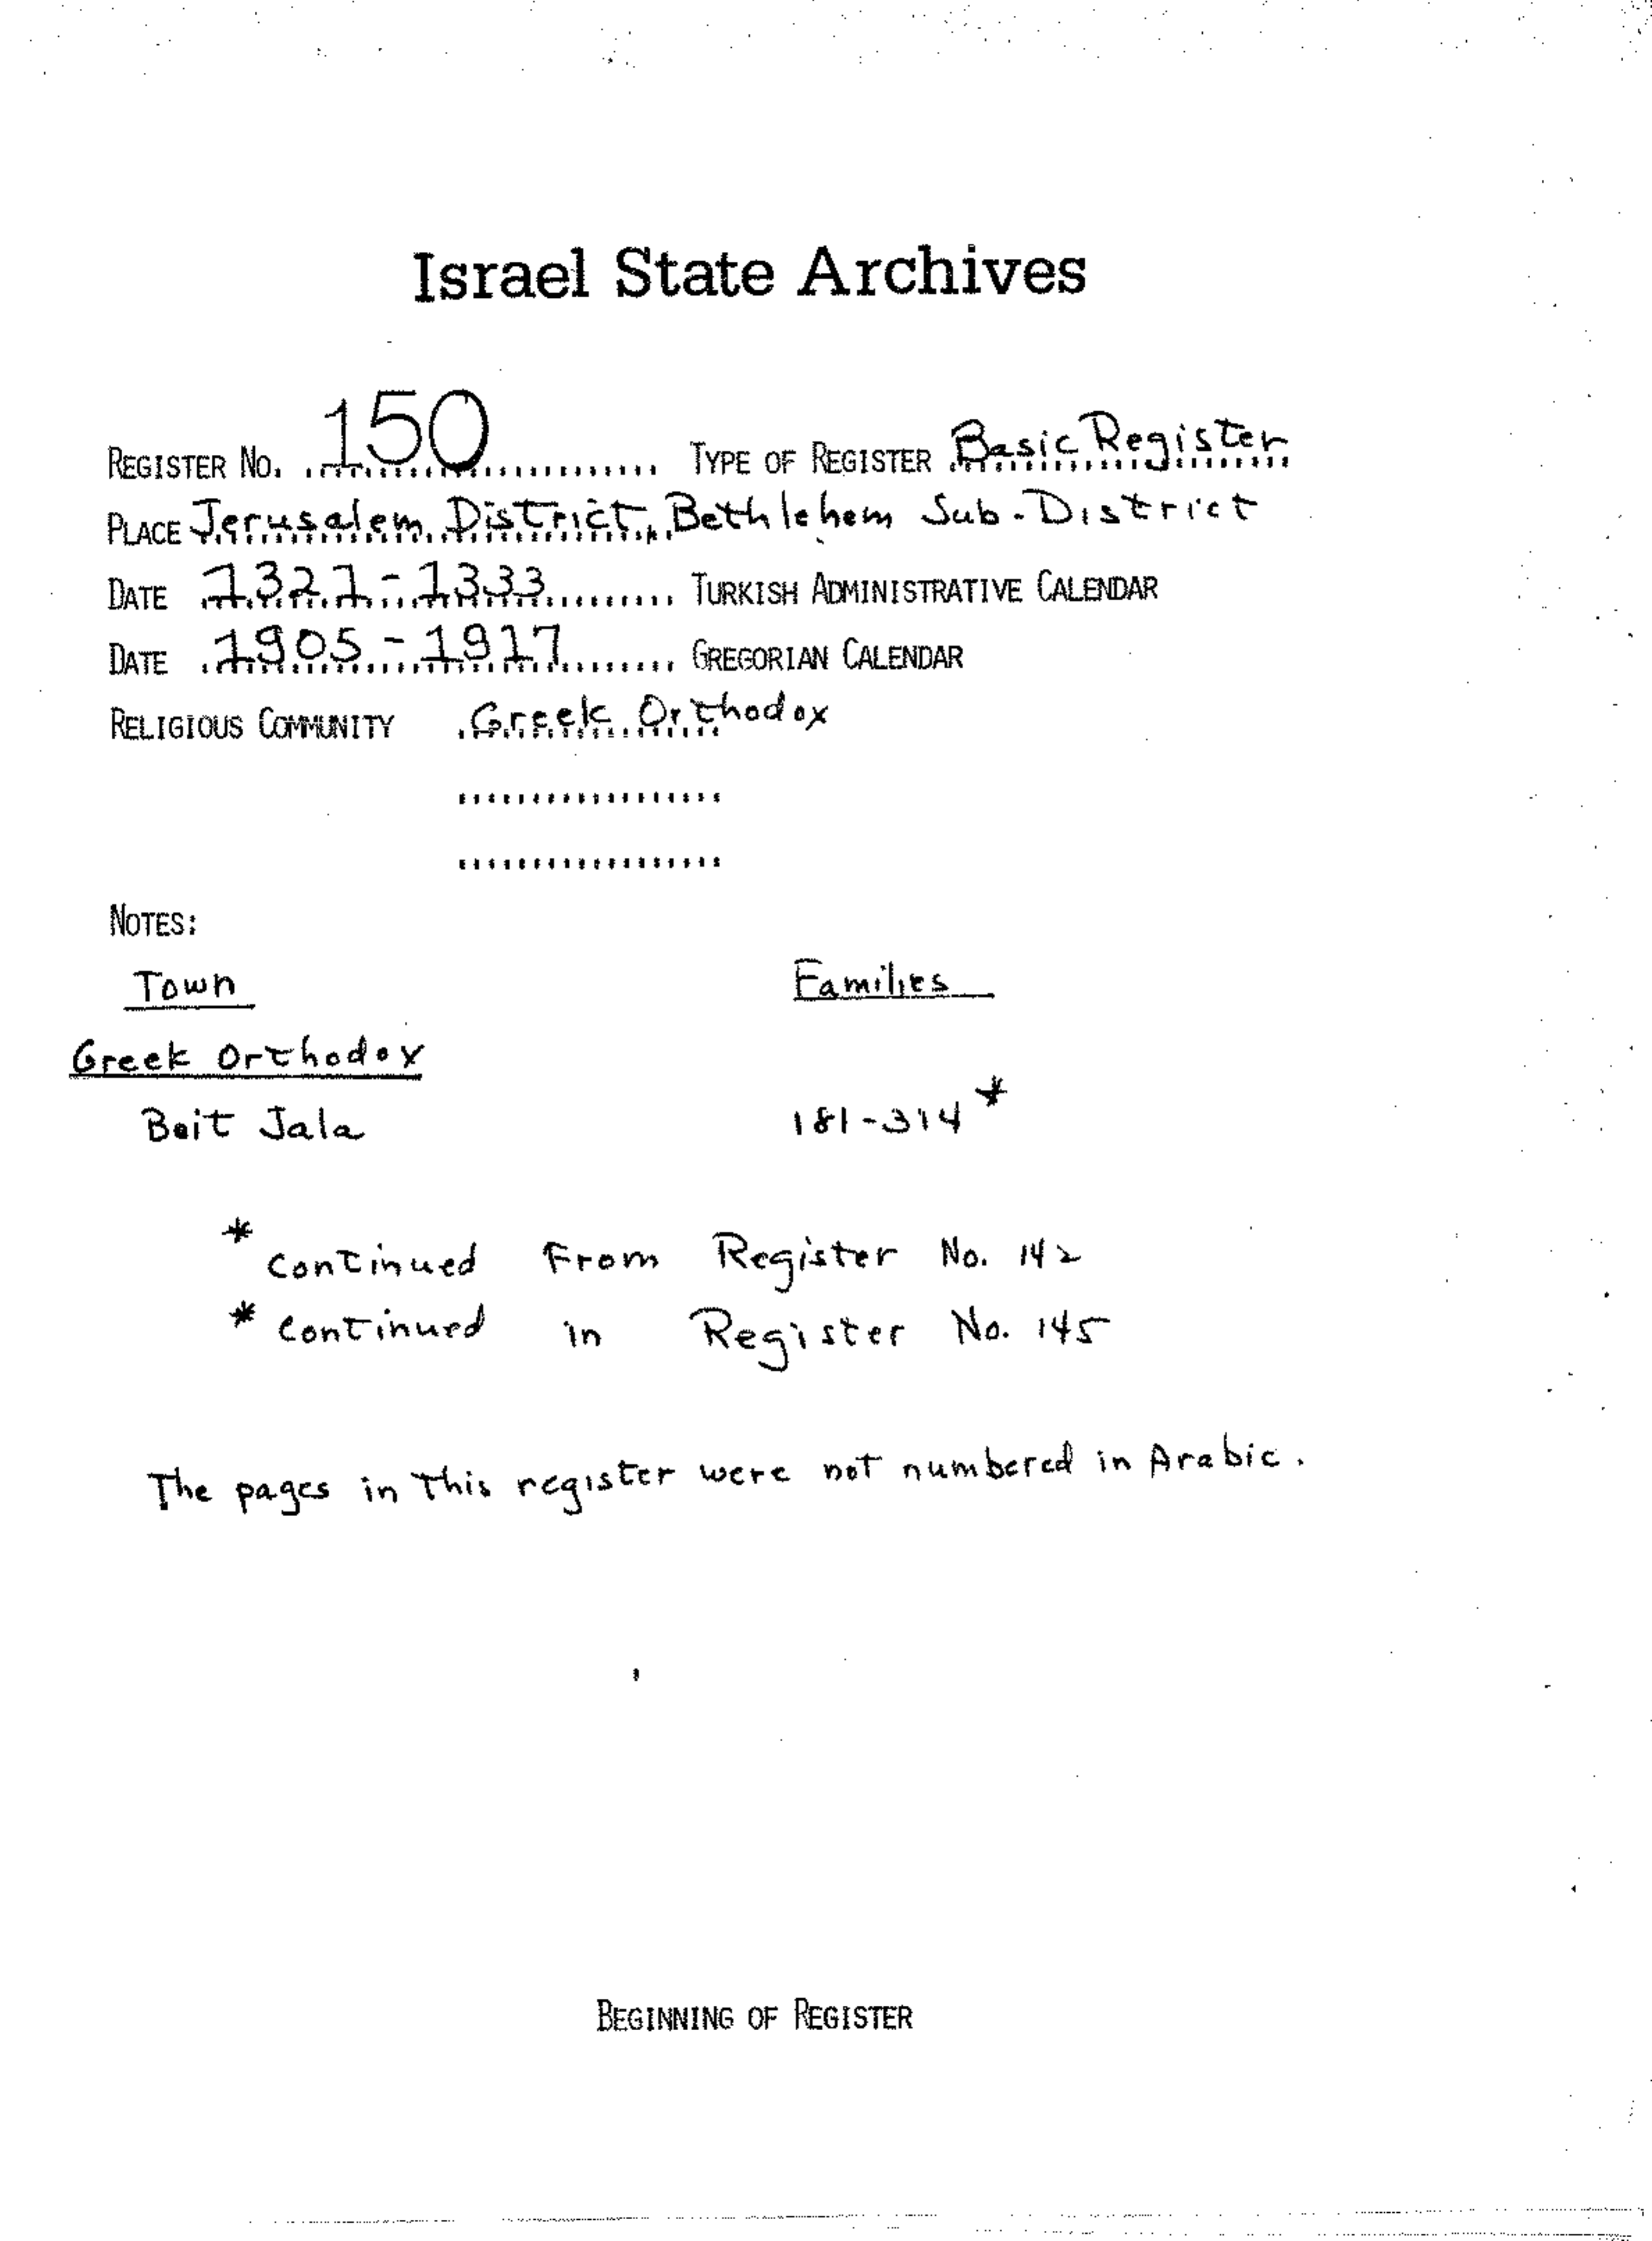 Israel State Archives
REGISTER NO. 150 TYPE OF REGISTER Basic Register
PLACE Jerusalem District, Bethlehem Sub-District
DATE 1321-1333 TURKISH ADMINISTRATIVE CALENDAR
DATE 1905-1917 GREGORIAN CALENDAR
RELIGIOUS COMMUNITY Greek Orthodox
NOTES:
Town Families
Greek Orthodox
Beit Jala 181-314*
* Continued From Register No. 142
* Continued in Register No. 145
The pages in This register were not numbered in Arabic.
BEGINNING OF REGISTER